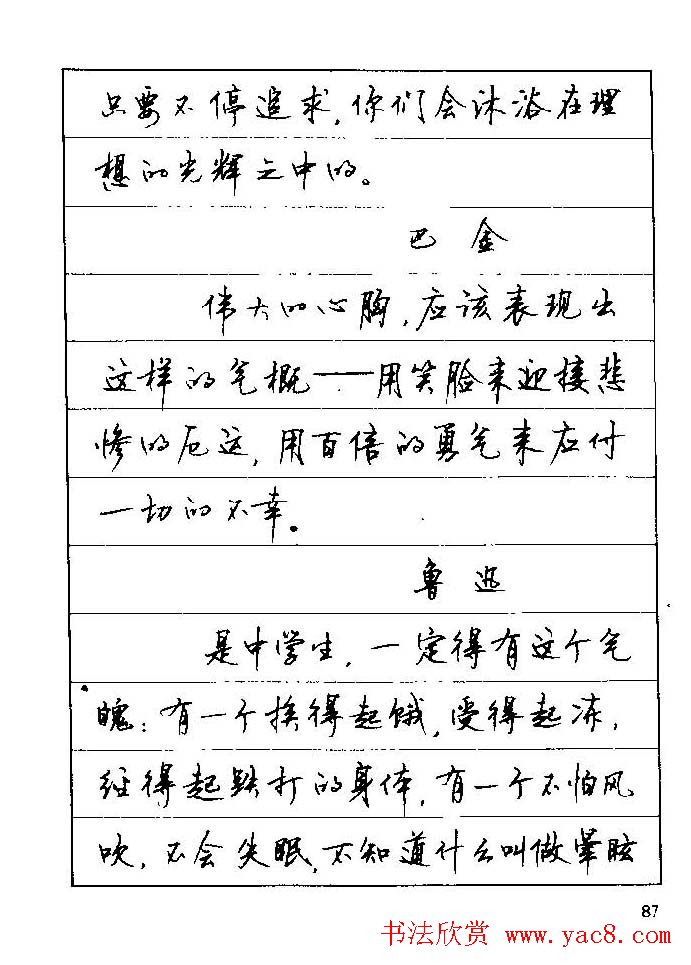 只要不停追求，你们会沐浴在理
想的光辉之中的。
巴金
伟大的心胸，应该表现出
这样的气概——用笑脸来迎接悲
惨的厄运，用百倍的勇气来应付
一切的不幸。
鲁迅
是中学生，一定得有这个气
魄：有一个挨得起饿，受得起冻，
经得起跌打的身体，有一个不怕风
吹，不会失眠，不知道什么叫做晕眩
87
书法欣赏 www.yac8.com